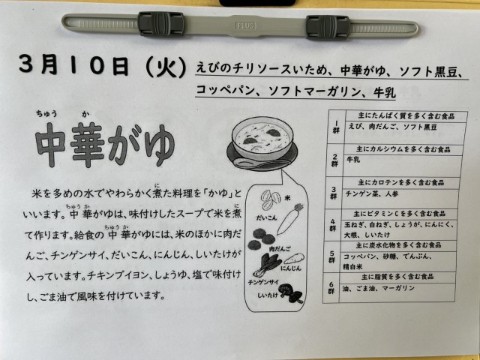 3月10日（火） えびのチリソースいため、中華がゆ、ソフト黒豆、
コッペパン、ソフトマーガリン、牛乳
ちゅう か
中華がゆ
に
米を多めの水でやわらかく煮た料理を「かゆ」と
ちゅうか に
いいます。中華がゆは、味付けしたスープで米を煮
ちゅうか
て作ります。給食の中華がゆには、米のほかに肉だ
んご、チンゲンサイ、だいこん、にんじん、しいたけが
入っています。チキンブイヨン、しょうゆ、塩で味付け
し、ごま油で風味を付けています。
米
だいこん
肉だんご
にんじん
チンゲンサイ
しいたけ
1群 主にたんぱく質を多く含む食品
えび、肉だんご、ソフト黒豆
2群 主にカルシウムを多く含む食品
牛乳
3群 主にカロテンを多く含む食品
チンゲン菜、人参
4群 主にビタミンCを多く含む食品
玉ねぎ、白ねぎ、しょうが、にんにく、
大根、しいたけ
5群 主に炭水化物を多く含む食品
コッペパン、砂糖、でんぷん、
精白米
6群 主に脂質を多く含む食品
油、ごま油、マーガリン